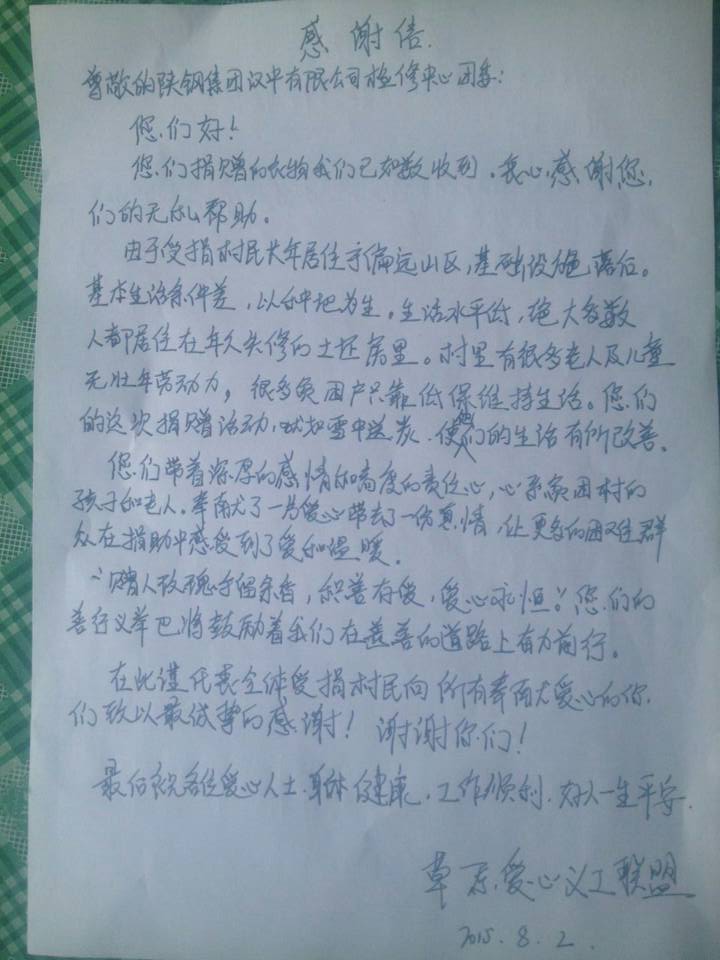 感谢信.
尊敬的陕钢集团汉中有限公司检修中心团委:
您们好!
您们捐赠的衣物我们已如数收到。衷心感谢您
们的无私帮助。
由于受捐村民长年居住于偏远山区,基础设施落后。
基本生活条件差,以种地为生。生活水平低,绝大多数
人都居住在年久失修的土坯房里。村里有很多老人及儿童
无壮年劳动力,很多贫困户只靠低保维持生活。您们
的这次捐赠活动,就如雪中送炭.使他们的生活有所改善。
您们带着深厚的感情和高度的责任心,心系贫困村的
孩子和老人.奉献了一片爱心带去了一份真情,让更多的困难群
众在捐助中感受到了爱和温暖。
"赠人玫瑰手留余香,积善存爱,爱心永恒."您们的
善行义举巴将鼓励着我们在慈善的道路上有力前行。
在此谨代表全体受捐村民向所有奉献爱心的你
们致以最诚挚的感谢!谢谢你们!
最后祝各位爱心人士.身体健康.工作顺利.好人一生平安.
草 爱心义工联盟
2015.8.2.